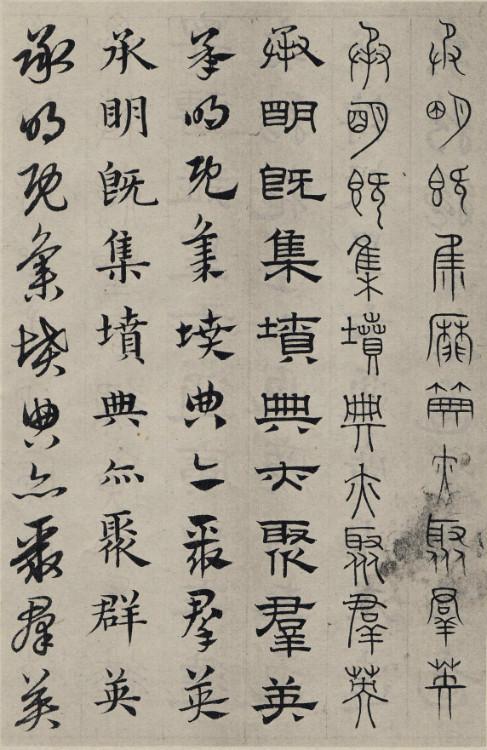 承明既集墳典亦聚羣英
承明既集墳典亦聚羣英
承明既集墳典亦聚羣英
承明既集墳典亦聚羣英
承明既集墳典亦聚群英
承明既集墳典亦聚羣英